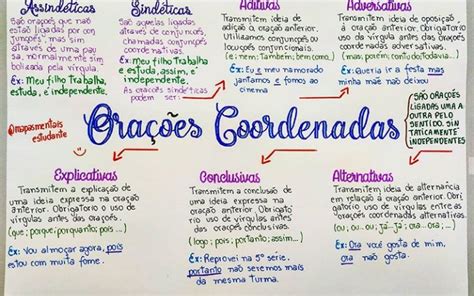 Assindéticas
São orações que não
estão ligadas por con
junções, mas sim
através de uma pau
sa, normalmente sim
bolizada pela vírgula.
Ex: Meu filho trabalha,
estuda, é independente.
Sindéticas
São aquelas ligadas
através de conjunções,
chamadas conjunções
coordenadas
Ex: meu filho trabalha
e estuda, assim, é
independente.
As orações sindéticas
podem ser:
Aditivas
Transmitem ideia de
adição à oração anterior.
Utilizamos conjunções ou
locuções conjuncionais.
(e; nem; também; bem como...)
Ex: Eu e meu namorado
jantamos e fomos ao
cinema
Adversativas
Transmitem ideia de oposição
à oração anterior. Obrigatório
uso da vírgula antes das orações
coordenadas adversativas.
(mas; porém; contudo; todavia...)
Ex: Queria ir a festa mas
minha mãe não deixou
@mapasmentais
estudante
Orações Coordenadas
SÃO ORAÇÕES
LIGADAS UMA A
OUTRA PELO
SENTIDO. SIN
TATICAMENTE
INDEPENDENTES
Explicativas
Transmitem a explicação de
uma ideia expressa na oração
anterior. Obrigatório o uso de
vírgula antes das orações.
(que; porque; porquanto; pois...)
Ex: Vou almoçar agora, pois
estou com muita fome.
Conclusivas
Transmitem a conclusão de
uma ideia expressa na
oração anterior. Obrigató
rio uso de vírgulas antes
das orações conclusivas.
(logo; pois; portanto; assim...)
Ex: Reprovei na 5ª série,
portanto não seremos mais
da mesma turma.
Alternativas
Transmitem ideia de alternância
em relação à oração anterior. Ob
rigatório uso de vírgulas entre as
orações coordenadas alternativas.
(ou; ou...ou; já...já; ora...ora...)
Ex: Ora você gosta de mim,
ora não gosta.